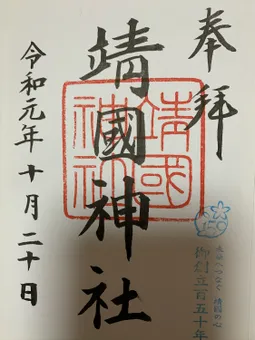 奉拝
靖國神社
靖國神社
令和元年十月二十日
御創立百五十年